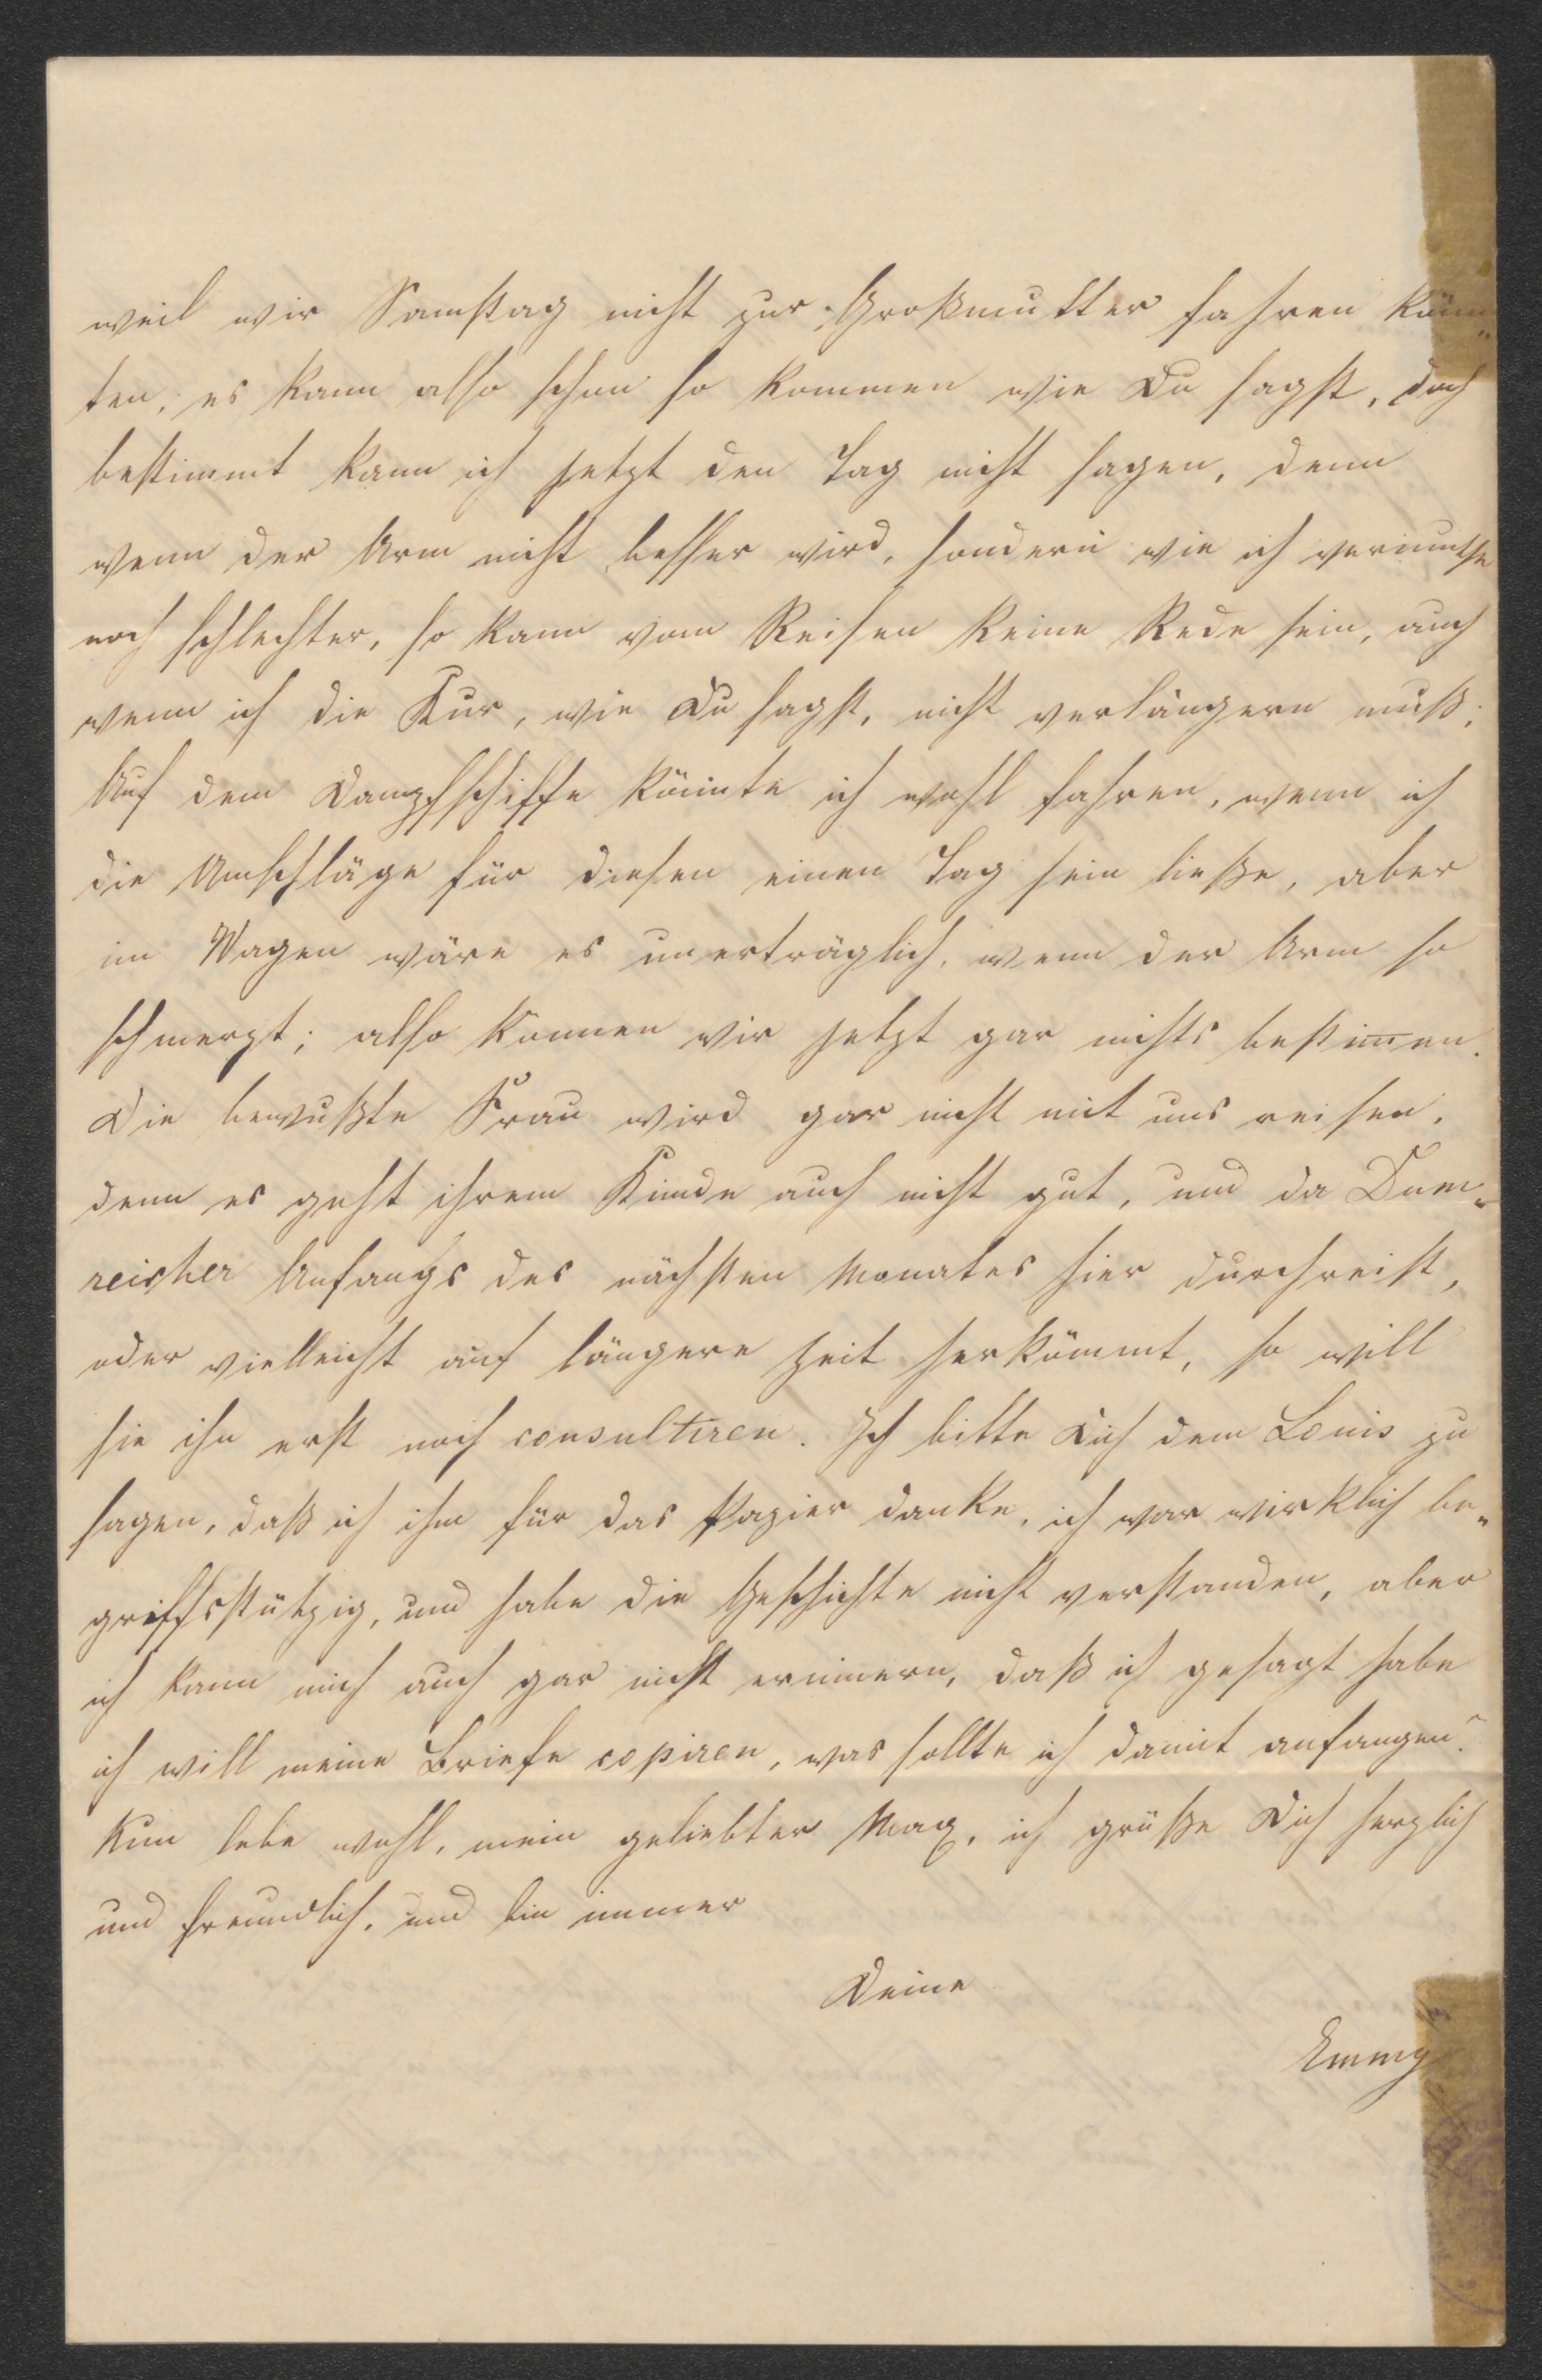 weil wir Samstag nicht zur Großmutter fahren könn-
ten, es kann also schon so kommen wie Du sagst, doch
bestimmt kann ich jetzt den Tag nicht sagen, denn
wenn der Arm nicht besser wird, sondern wie ich vermuthe
noch schlechter, so kann vom Reisen keine Rede sein, auch
wenn ich die Kur, wie Du sagst, nicht verlängern muß;
Auf dem Dampfschiffe könnte ich wohl fahren, wenn ich
die Umschläge für diesen einen Tag sein ließe, aber
im Wagen wäre es unerträglich, wenn der Arm so
schmerzt; also können wir jetzt gar nichts bestim̅en.
Die bewußte Frau wird gar nicht mit uns reisen,
denn es geht ihrem Kinde auch nicht gut, und da Dum-
reicher Anfangs des nächsten Monates hier durchreist,
oder vielleicht auf längere Zeit herkömmt, so will
sie ihn erst noch consultiren. Ich bitte Dich dem Louis zu
sagen, daß ich ihm für das Papier danke, ich war wirklich be-
griffsstützig, und habe die Geschichte nicht verstanden, aber
ich kann mich auch gar nicht erinnern, daß ich gesagt habe
ich will meine Briefe copiren, was sollte ich damit anfangen?
Nun lebe wohl, mein geliebter Max, ich grüße Dich herzlich
und freundlich, und bin immer
Deine
Emmy